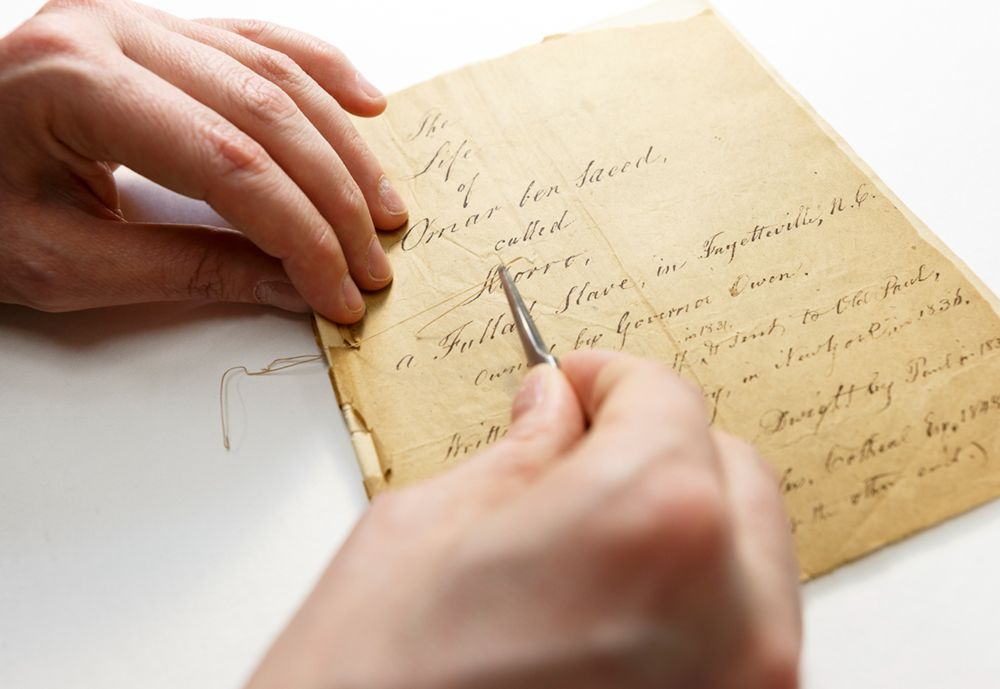 The
Life
of
Omar ben Saeed,
called
Morro,
a Fullah Slave, in Fayetteville, N.C.
owned by Governor Owen.
in 1831.
sent to Old Paul,
in New York, in 1836.
Dwight by Paul in 183
Cotheal Esq, 1848
the other end.)